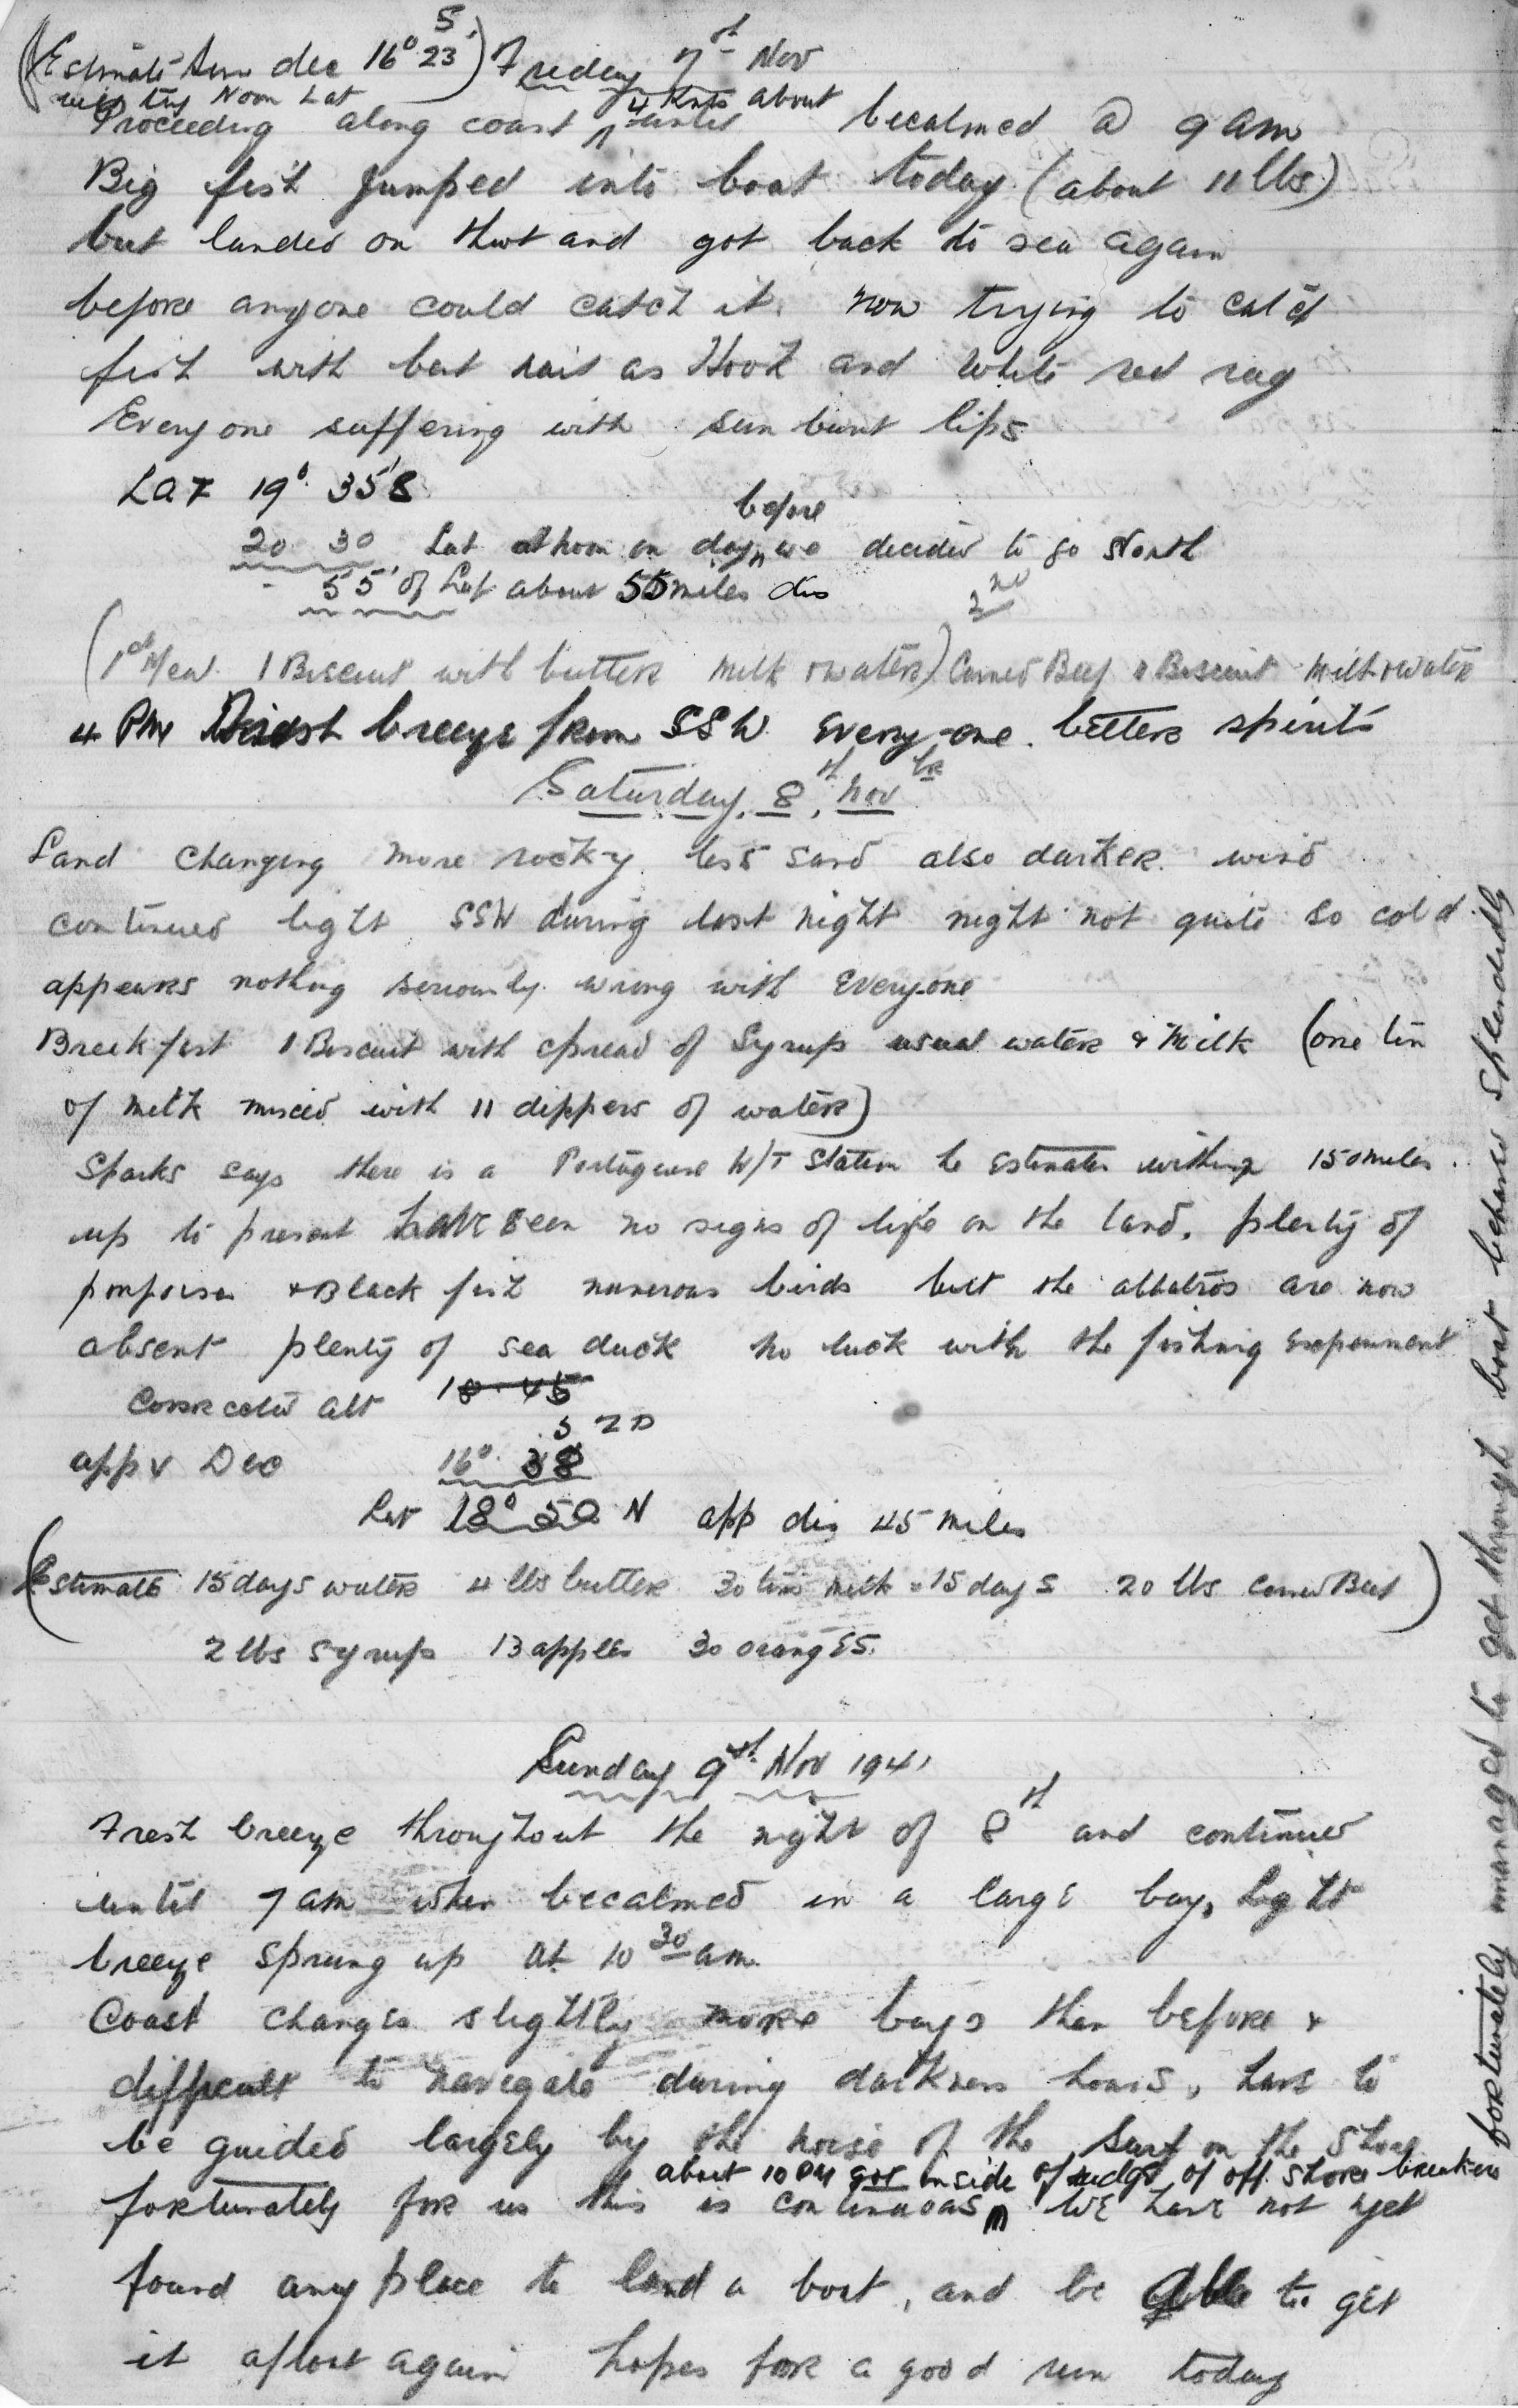 (Estimate Sun dec 16° 23' S) Friday 7th Nov
Noon Lat
Proceeding along coast 4 Knts until about becalmed @ 9 am
Big fish jumped into boat today (about 11 lbs)
but landed on thwt and got back to sea again
before anyone could catch it. now trying to catch
fish with bent nail as Hook and white red rag
Everyone suffering with sun burnt lips
Lat 19° 35' S
20 30 Lat at noon on day before we decided to go North
55' of Lat about 55 miles dis
(1st Meal 1 Biscuit with butter milk & water) 2nd Corned Beef & Biscuit milk & water
4 PM breeze from SSW everyone better spirits
Saturday 8th Novbr
Land changing more rocky less sand also darker wind
continued light SSW during last night night not quite so cold
appears nothing seriously wrong with Everyone
Breekfast 1 Biscuit with spread of Syrup usual water & Milk (one tin
of milk mixed with 11 dippers of water)
Sparks says there is a Portuguese W/T Station he estimates within 150 miles.
up to present have seen no signs of life on the land, plenty of
porpoises & Black fish numerous birds but the albatros are now
absent plenty of sea duck no luck with the fishing experiment
Corrected alt 18 45
S ZD
appx Dec 16° 38
Lat 18° 50 N app dis 45 miles
(Estimate 15 days water 4 lbs butter 30 tins milk = 15 days 20 lbs Corned Beef)
2 lbs Syrup 13 apples 30 oranges.
Sunday 9th Nov 1941
Fresh breeze throughout the night of 8th and continued
until 7 am when becalmed in a large bay, light
breeze sprung up at 10 30 am
Coast changes slightly more bays than before &
difficult to navigate during darkness hours, have to
be guided largely by the noise of the surf on the shore
about 10 PM got inside of ridge of off shore breakers
fortunately for us this is continuous, We have not yet
found any place to land a boat, and be able to get
it afloat again hopes for a good run today
fortunately managed to get through boat behaved splendidly